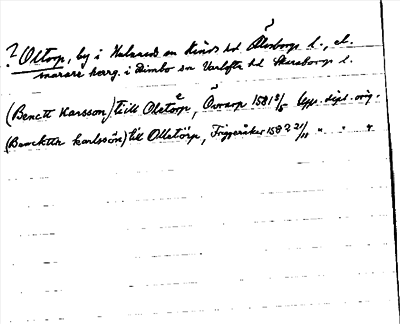 ? Oltorp, by i Halareds sn Kinds hd Älvsborgs l., el.
snarare herrg. i Dimbo sn Vartofta hd Skaraborgs l.
(Benctt Karsson) till Olstorp, Öv 1581 3/5 Upps. dipl. orig.
(Benckttr Karlssön) till Ollstörp, Friggeråker 1582 21/11 " " "